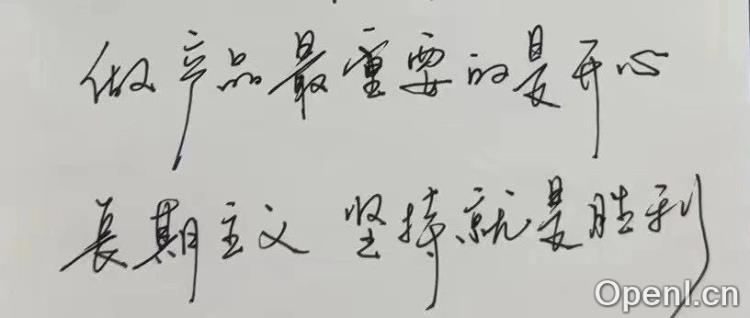 做产品最重要的是开心
長期主义 坚持就是胜利
OpenI.cn